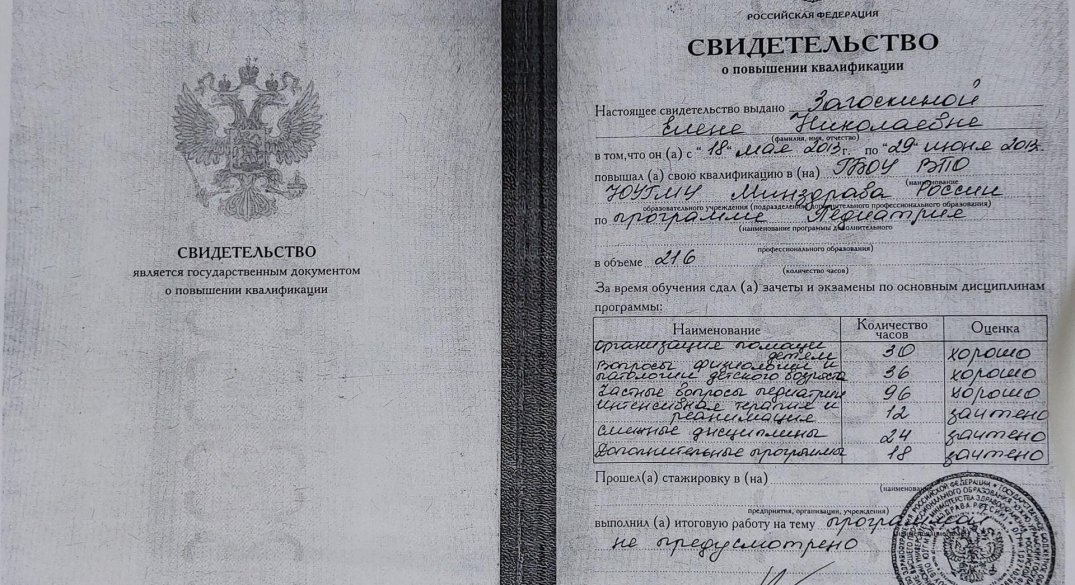 СВИДЕТЕЛЬСТВО
является государственным документом
о повышении квалификации
РОССИЙСКАЯ ФЕДЕРАЦИЯ
СВИДЕТЕЛЬСТВО
о повышении квалификации
Настоящее свидетельство выдано Загоскиной
Елене Николаевне
(фамилия, имя, отчество)
в том, что он (а) с "18" мая 2013 г. по "29" июня 2013г.
повышал (а) свою квалификацию в (на) ГБОУ ВПО
(наименование
ЮУГМУ Минздрава России
образовательного учреждения (подразделения) дополнительного профессионального образования)
по программе Педиатрия
(наименование программы дополнительного
профессионального образования)
в объеме 216
(количество часов)
За время обучения сдал (а) зачеты и экзамены по основным дисциплинам
программы:
Наименование Количество часов Оценка
Организация помощи детям 30 хорошо
Вопросы физиологии и
патологии детского возраста 36 хорошо
Частные вопросы педиатрии 96 хорошо
Интенсивная терапия и
реанимация 12 зачтено
Смежные дисциплины 24 зачтено
Дополнительные программы 18 зачтено
Прошел(а) стажировку в (на)
предприятия, организации, учреждения)
выполнил (а) итоговую работу на тему программой
не предусмотрено